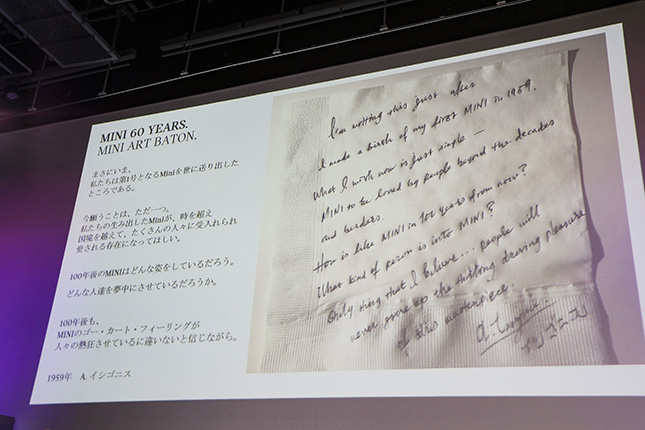 MINI 60 YEARS.
MINI ART BATON.
まさにいま、
私たちは第1号となるMiniを世に送り出した
ところである。
今願うことは、ただ一つ。
私たちの生み出したMiniが、時を超え
国境を越えて、たくさんの人々に受入れられ
愛される存在になってほしい。
100年後のMINIはどんな姿をしているだろう。
どんな人達を夢中にさせているだろうか。
100年後も、
MINIのゴー・カート・フィーリングが
人々の熱狂させているに違いないと信じながら。
1959年 A. イシゴニス
I am writing this just after
I made a birth of my first MINI in 1959.
What I wish now is just simple —
MINI to be loved by people beyond the decades
and borders.
How is like MINI in 100 years from now?
What kind of person is into MINI?
Only thing that I believe... people will
never give up the thrilling driving pleasure
of this masterpiece.
イシゴニス